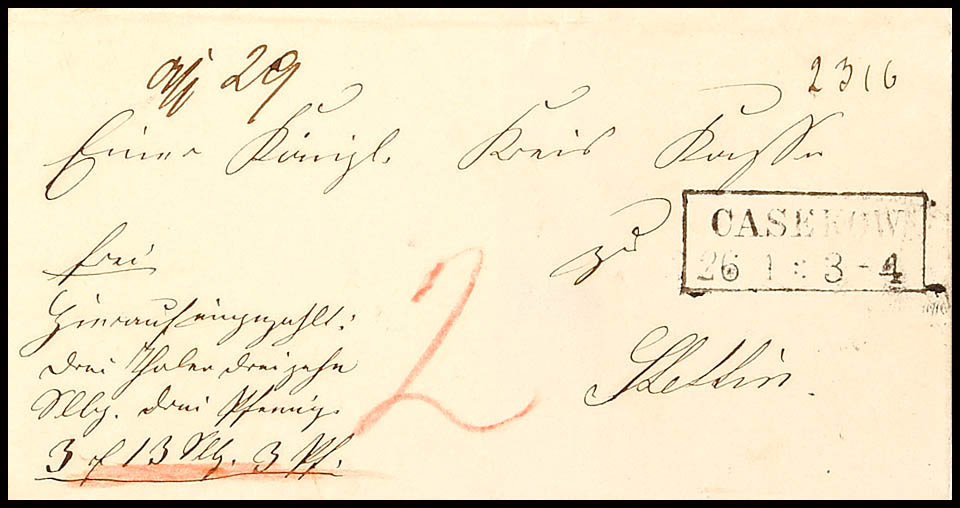 29
2316
Einer Königl. Kreis Kasse
zu
CASEKOW
26 1 : 3 - 4
frei
Hierauf eingezahlt:
drei Thaler dreizehn
Sllbg. drei Pfennig.
2
Stettin.
3 rf 13 Sllg. 3 Pf.